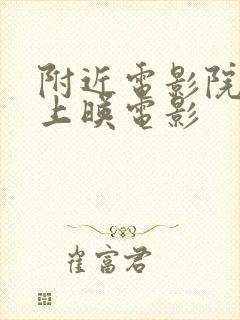 附近電影院
上暎電影
崔富君